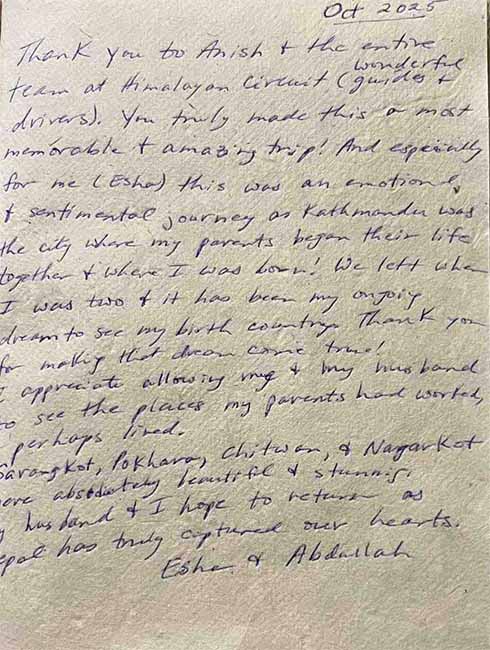 Oct 2025
Thank you to Anish & the entire
team at Himalayan Circuit (wonderful guides &
drivers). You truly made this a most
memorable & amazing trip! And especially
for me (Esha) this was an emotional,
& sentimental journey as Kathmandu was
the city where my parents began their life
together & where I was born! We left when
I was two & it has been my ongoing
dream to see my birth country. Thank you
for making that dream come true!
I appreciate allowing me & my husband
to see the places my parents had worked,
perhaps lived.
Sarangkot, Pokhara, Chitwan, & Nagarkot
were absolutely beautiful & stunning.
husband & I hope to return as
epal has truly captured our hearts.
Esha & Abdullah